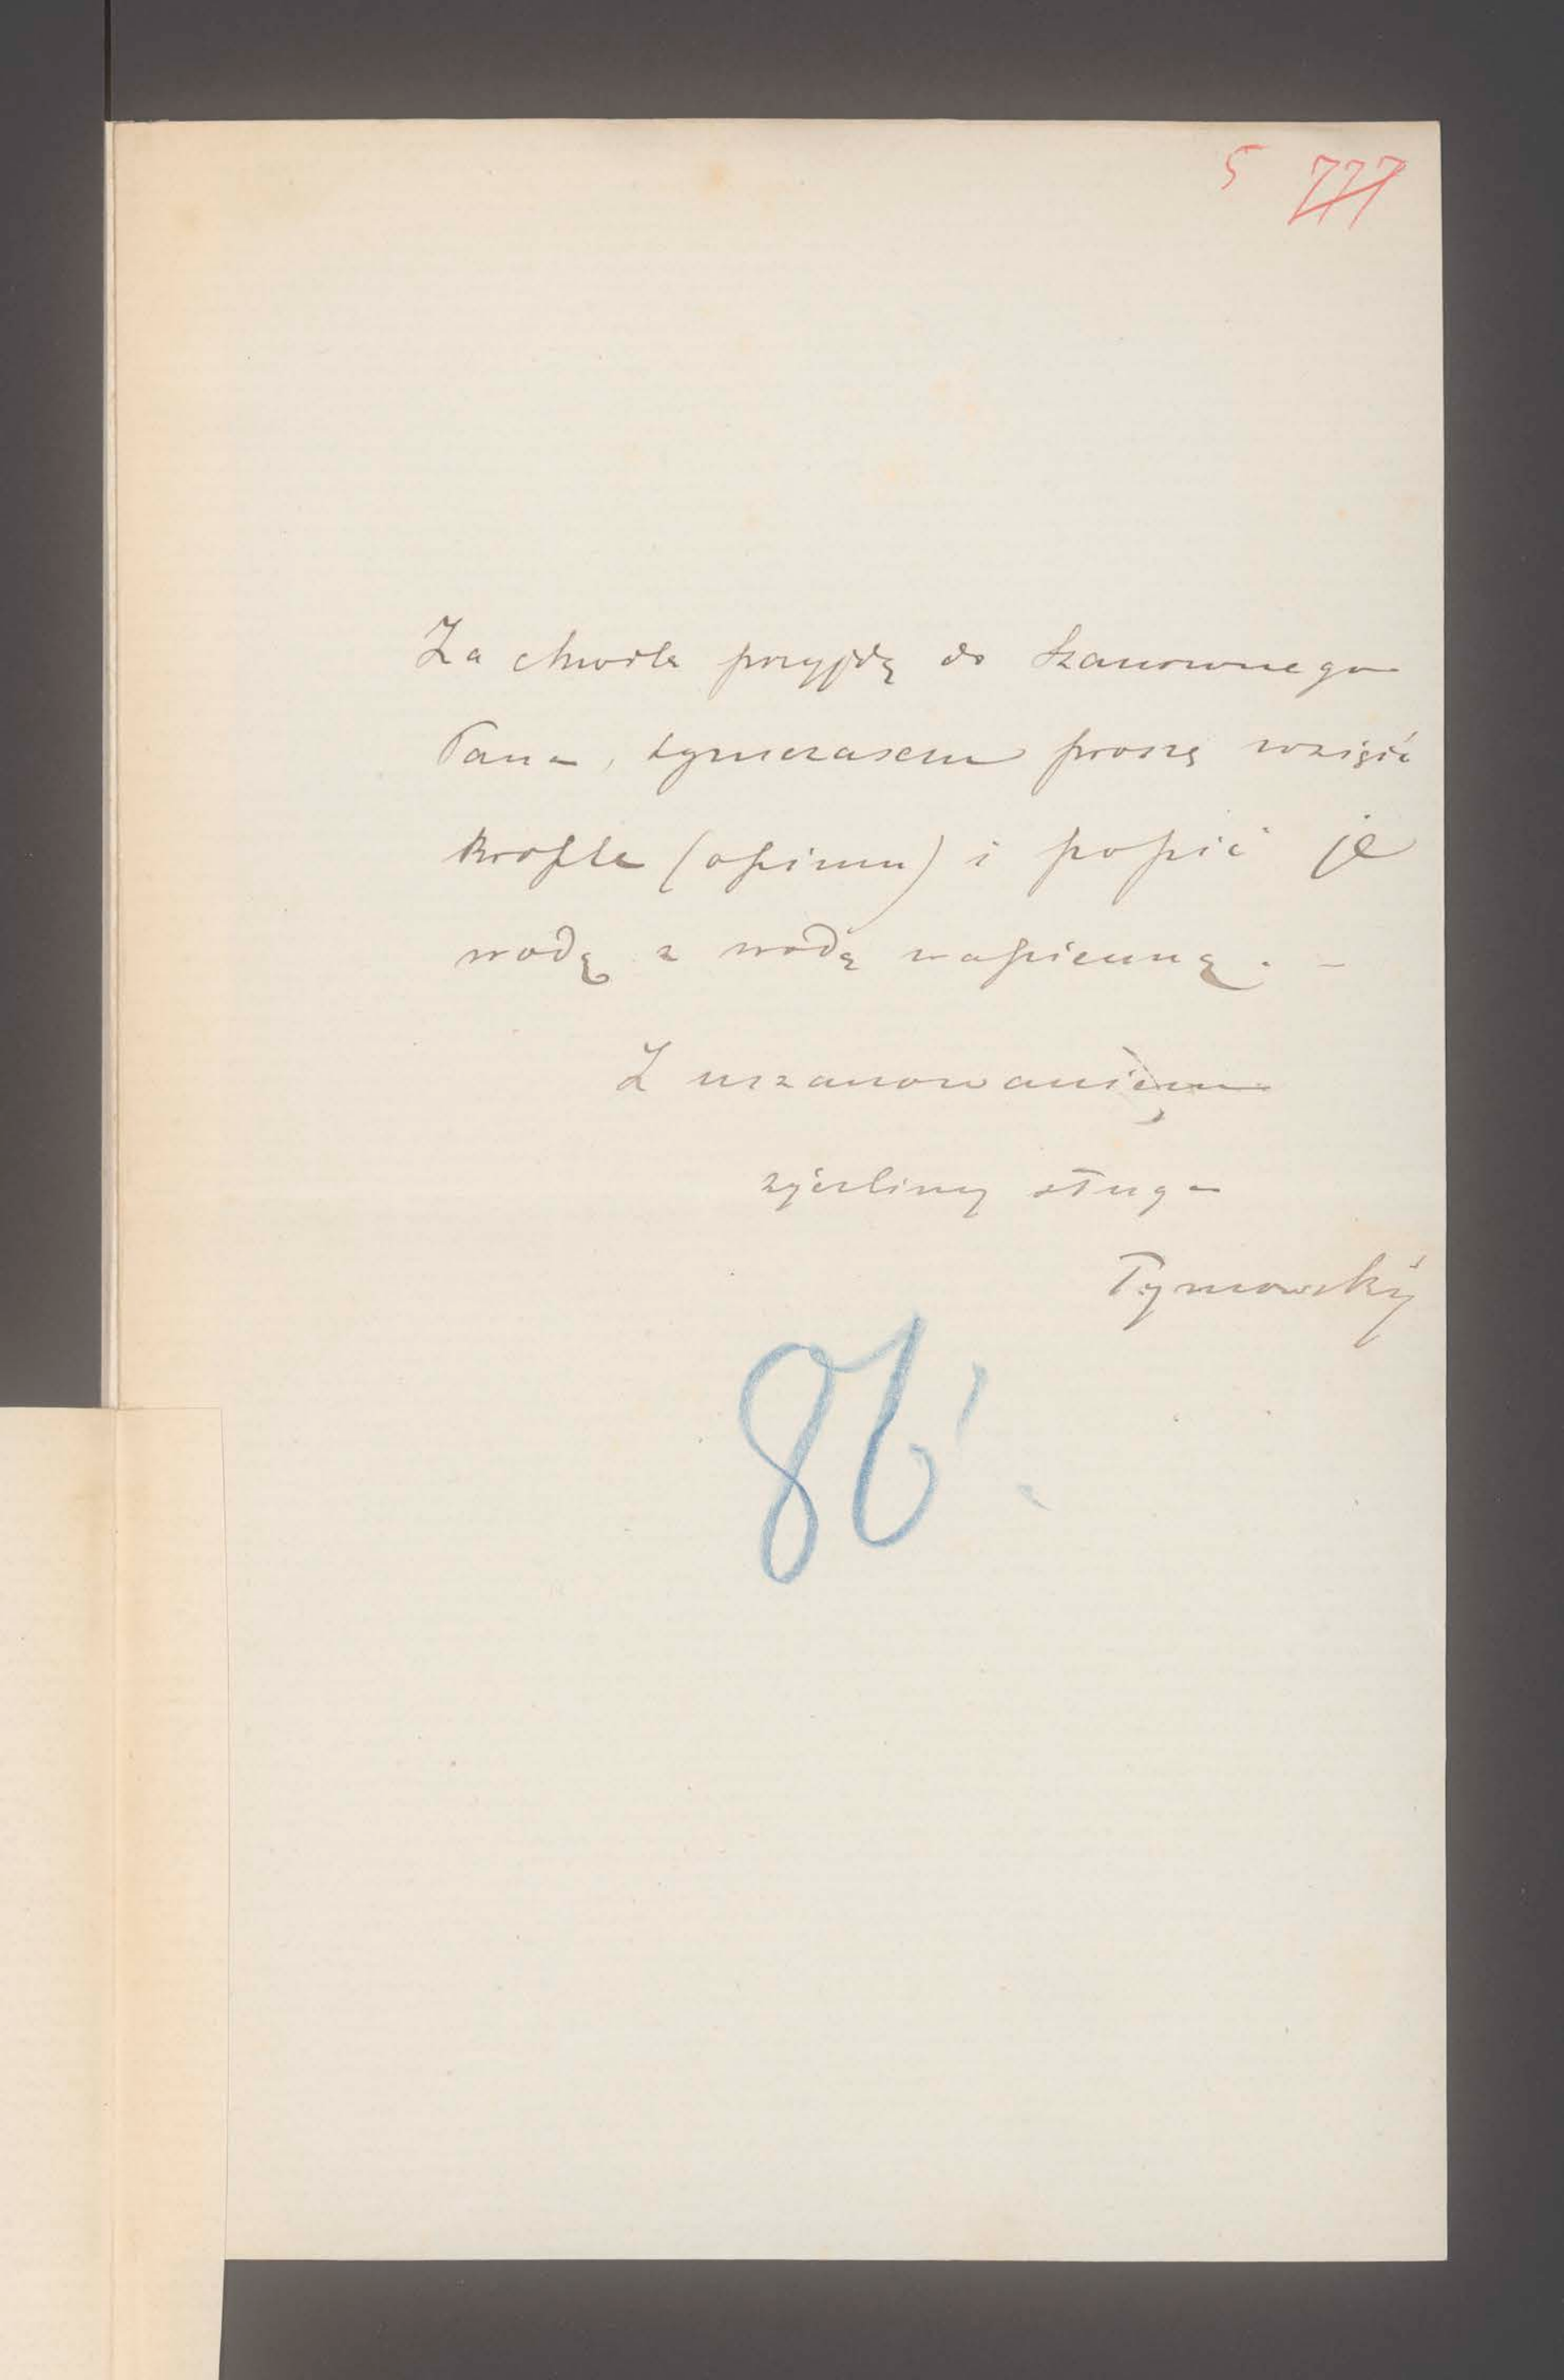 5 777
Za chwile przyjdę do Szanownego
Pana, tymczasem proszę wziąść
krople (opium) i popić je
wodą z wodą wapienną. –
Z uszanowaniem
życzliwy sługa
Tymowski
86!